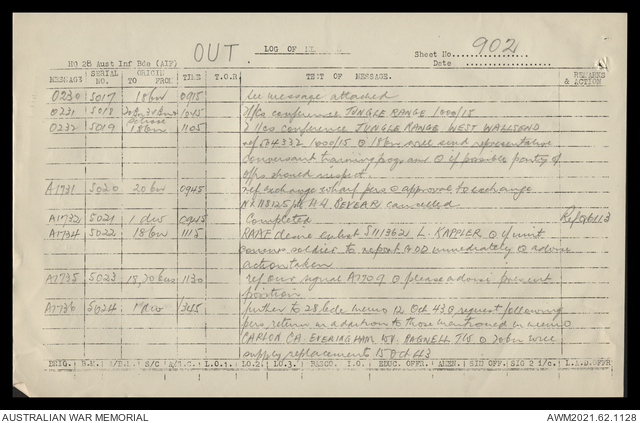 OUT
LOG OF
Sheet No. 902
HQ 28 Aust Inf Bde (AIF)
Date
MESSAGE SERIAL NO. ORIGIN TO FROM TIME T.O.R. TEXT OF MESSAGE. REMARKS & ACTION
0230 5017 18 bn 0915 see message attached
0231 5018 1045 2 i/cs conference JUNGLE RANGE 1000/15
0232 5019 18 bn 1105 2 i/cs Conference JUNGLE RANGE WEST WALLSEND
ref 504332 1000/15 18 bn will send representative
conversant training program if possible party of
offrs should inspect.
A1731 5020 20 bn 0945 ref exchange pers approval to exchange
BEVEAR cancelled
A1732 5021 1 div 0945 Completed
A1734 5022 18 bn 1115 RAAF desire enlist S1113621 L. KAPPLER if unit
soldier to report immediately advise
action taken
A1735 5023 18, 30 bns 1130 ref our signal A1709 please advise present
position
A1736 5024 1345 further to 28 bde memo 12 Oct 43 request following
pers return in addition to those mentioned in memo
CARLON CA. EVERINGHAM BAGNELL 20 bn will
supply replacements 15 Oct 43
BRIG. B.M. S/C L.O.1. L.O.2. L.O.3. I.O. EDUC. OFFR. AMEN. SIG OFF. SIG 2 i/c. L.A.D. OFFR
AUSTRALIAN WAR MEMORIAL
AWM2021.62.1128